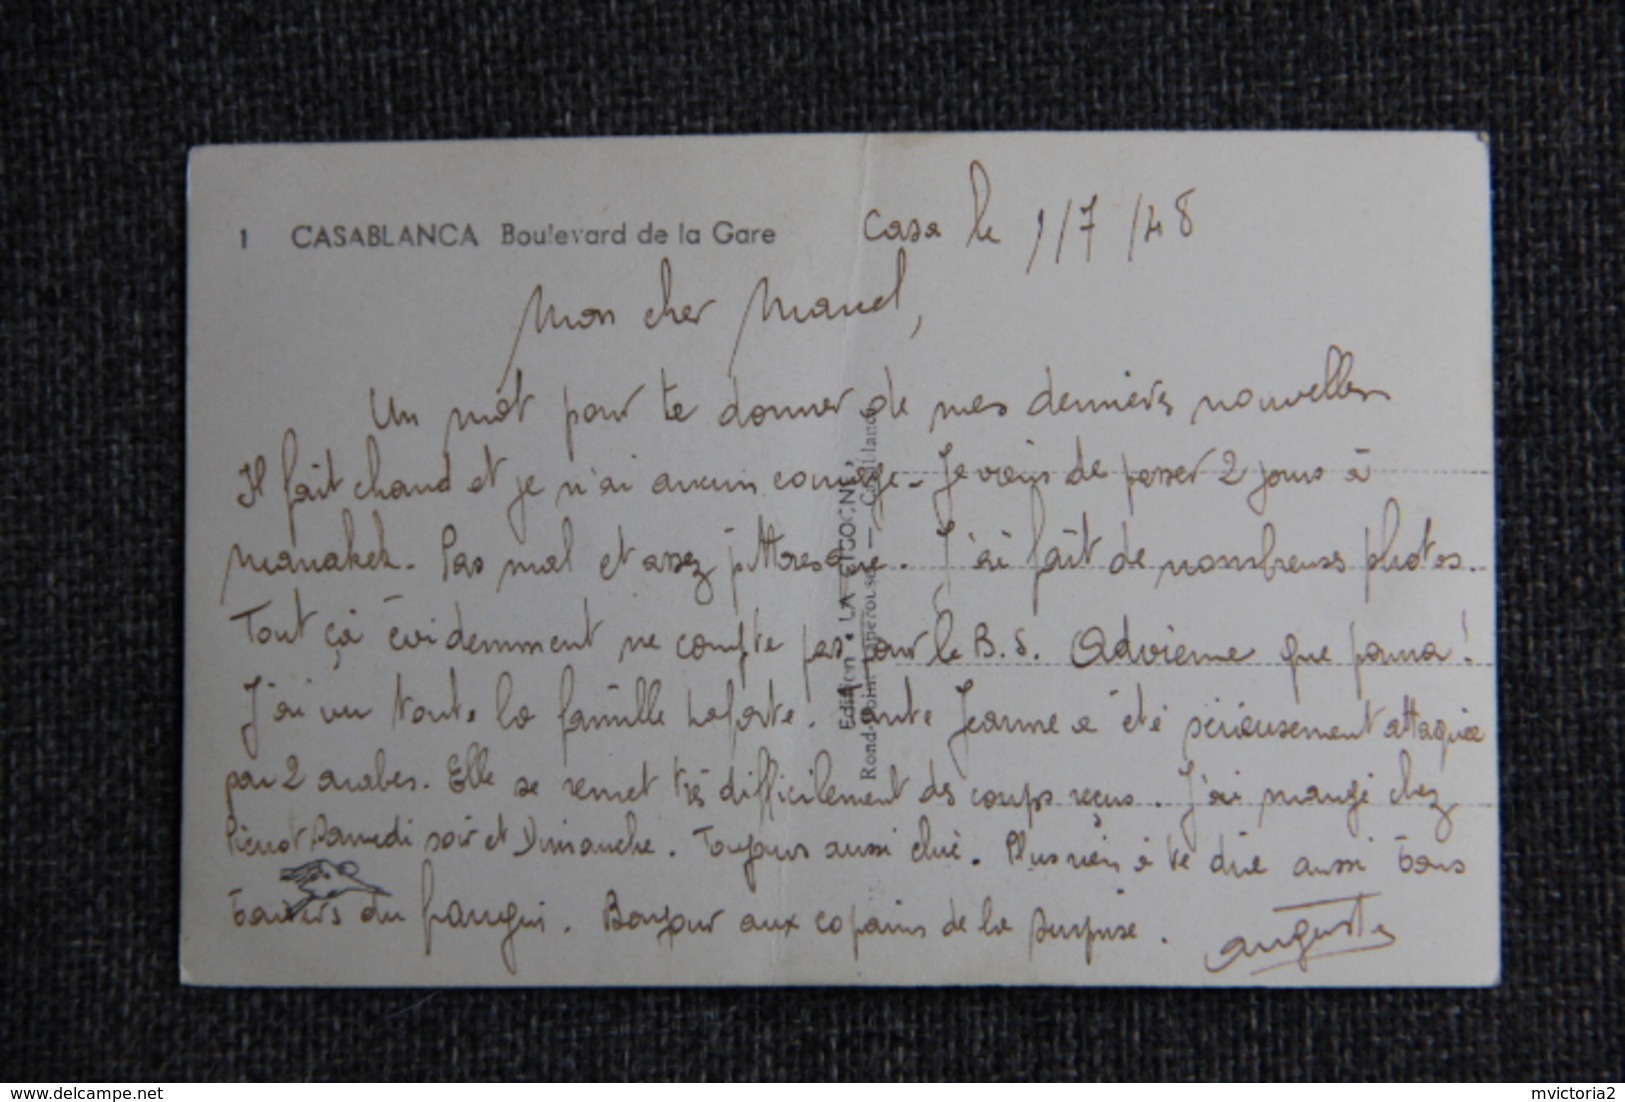 1 CASABLANCA Boulevard de la Gare
Casa le 1/7/48
Mon cher Marcel,
Un mot pour te donner de mes dernières nouvelles
Il fait chaud et je n'ai aucun courage. Je viens de passer 2 jours à
Marrakech. Pas mal et assez pittoresque. J'ai fait de nombreuses photos.
Tout çà évidemment ne compte pas pour le B.S. Advienne que pourra!
J'ai vu toute la famille Laforte. Tante Jeanne a été sérieusement attaquée
par 2 arabes. Elle se remet très difficilement des coups reçus. J'ai mangé chez
Pierrot Samedi soir et Dimanche. Toujours aussi chic. Plus rien à te dire aussi bons
baisers du frangin. Bonjour aux copains de la surprise.
Auguste
Edition "LA CIGOGNE"
Rond-Point Lapérouse — Casablanca
www.delcampe.net
mvictoria2